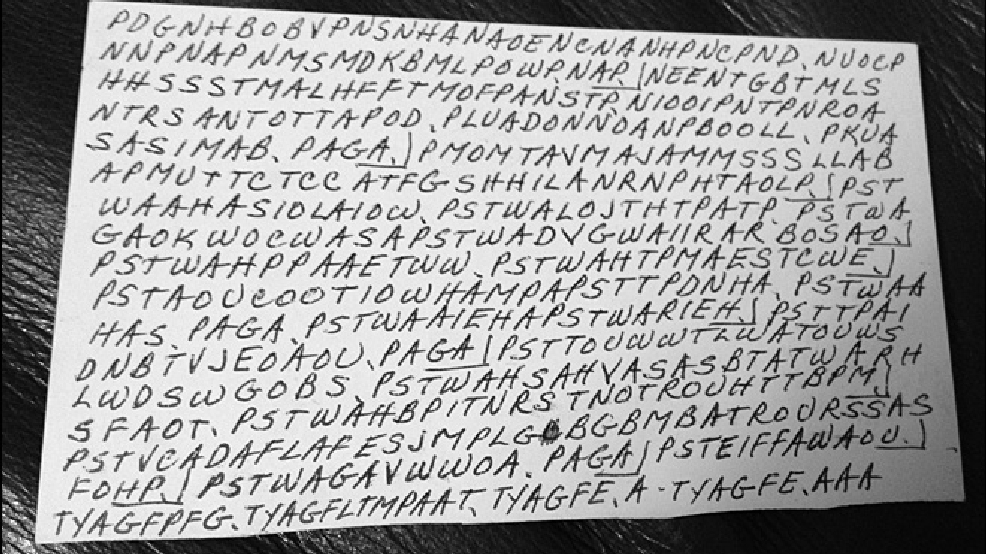 PDGNHBOBVPNSNHANAOENCNANHPNCPND. NUOCP
NNPNAPNMSMDKBMLPOWP.NAP.|NEENTGBTMLS
HHSSSTMALHFFTMOFPANSTP. NIOOIPNTPNROA
NTRSANTOTTAPOD. PLUADONNOANPBOOLL. PKUA
SASIMAB. PAGA.|PMOMTAVMAJAMMSSSLLAB
APMUTTCTCCATFGSHHILANRNPHTAOLP.|PST
WAAHASIOLAIOW. PSTWALOJTHTPATP. PSTWA
GAOKWOCWASAPSTWADVGWAIIRARBOSAO.|
PSTWAHPPAAETWW. PSTWAHTPMAESTCWE.|
PSTAOUCOOTIOWHAMPAPSTTPDNHA. PSTWAA
HAS. PAGA. PSTWAAIEHAPSTWARIEH.|PSTTPAI
DNBTVJEOAOU. PAGA|PSTTOUWWTLWATOUWS
LWDSWGOBS. PSTWAHSAHVASASBTATWARH
SFAOT. PSTWAHBPITNRSTNOTROUHTTBPM.|
PSTVCADAFLAFESJMPLG BGBMBATROURSSAS
FOHP.|PSTWAGAVWWOA. PAGA|PSTEIFFAWAOU.|
TYAGFPFG. TYAGFLTMPAAT. TYAGFE. A-TYAGFE. AAA